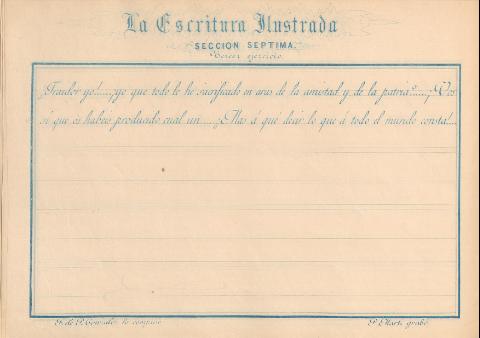 La Escritura Ilustrada
SECCION SEPTIMA.
Tercer ejercicio.
¡Traidor yo!....¡yo que todo lo he sacrificado en aras de la amistad y de la patria?.....¡Vos
sí que os habeis producido cual un.....¿Mas á qué decir lo que á todo el mundo consta!....
F. de P. Gonzalez lo compuso
P. Martí grabó